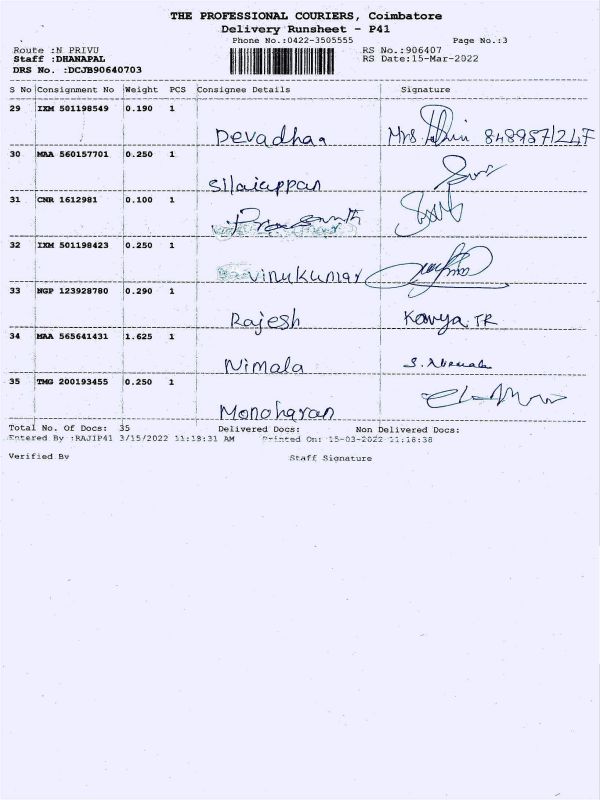 THE PROFESSIONAL COURIERS, Coimbatore
Delivery Runsheet - P41
Phone No.:0422-3505555 Page No.:3
Route :N PRIVU RS No.:906407
Staff :DHANAPAL RS Date:15-Mar-2022
DRS No. :DCJB90640703
S No Consignment No Weight PCS Consignee Details Signature
29 IXM 501198549 0.190 1
Devadhaa Mrs.
30 MAA 560157701 0.250 1
Silaiappan
31 CNR 1612981 0.100 1
32 IXM 501198423 0.250 1
Vinukumar
33 NGP 123928780 0.290 1
Rajesh Kavya TR
34 MAA 565641431 1.625 1
Nimala
35 TMG 200193455 0.250 1
Manoharan
Total No. Of Docs: 35 Delivered Docs: Non Delivered Docs:
Entered By :RAJIP41 3/15/2022 11:18:31 AM Printed On: 15-03-2022 11:18:38
Verified By Staff Signature